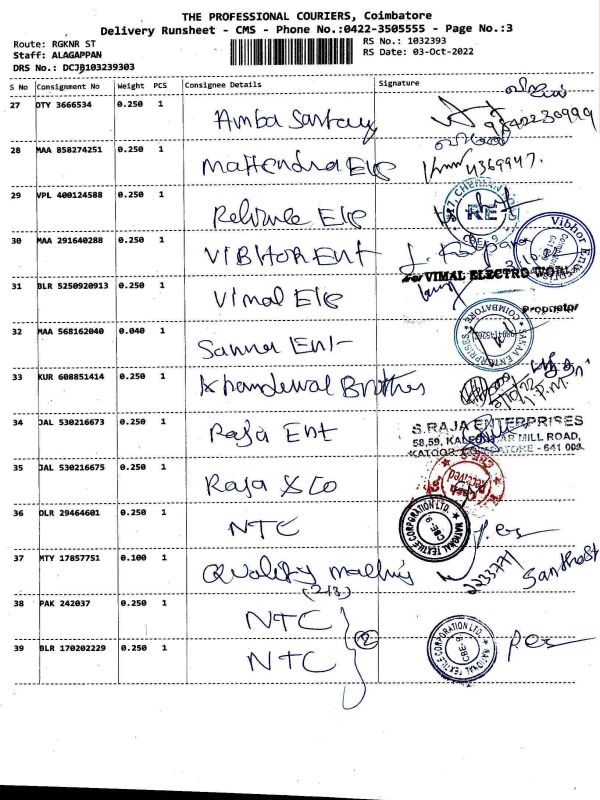 THE PROFESSIONAL COURIERS, Coimbatore
Delivery Runsheet - CMS - Phone No.:0422-3505555 - Page No.:3
Route: RGKNR ST
RS No.: 1032393
Staff: ALAGAPPAN
RS Date: 03-Oct-2022
DRS No.: DCJB103239303
S No Consignment No Weight PCS Consignee Details Signature
27 DTY 3666534 0.250 1 Amba Sankay
28 MAA 858274251 0.250 1 Mahendra Ele 4369947.
29 VPL 400124588 0.250 1 Reliance Ele RE
30 MAA 291640288 0.250 1 VIBHOR Ent Vibhor Ent
For VIMAL ELECTRO WORLD
31 BLR 5250920913 0.250 1 Vimal Ele
Proprietor
32 MAA 568162040 0.040 1 Sanna Ent COIMBATORE
33 KUR 608851414 0.250 1 Khandelwal Brothers
34 JAL 530216673 0.250 1 Raja Ent S.RAJA ENTERPRISES
58,59, MILL ROAD,
KATOOR, COIMBATORE - 641 009.
35 JAL 530216675 0.250 1 Raja & Co Received
36 DLR 29464601 0.250 1 NTC NATIONAL TEXTILE CORPORATION LTD. CBE-9
37 MTY 17857751 0.100 1 Quality
(213)
38 PAK 242037 0.250 1 NTC
2
39 BLR 170202229 0.250 1 NTC NATIONAL TEXTILE CORPORATION LTD. CBE-9